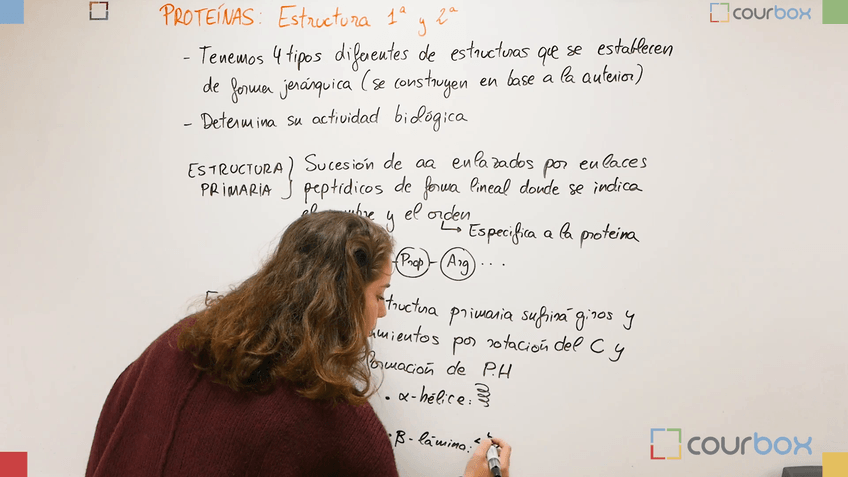 PROTEÍNAS: Estructura 1ª y 2ª
courbox
- Tenemos 4 tipos diferentes de estructuras que se establecen
de forma jerárquica (se construyen en base a la anterior)
- Determina su actividad biológica
ESTRUCTURA PRIMARIA
Sucesión de aa enlazados por enlaces
peptídicos de forma lineal donde se indica
y el orden
Especifica a la proteína
- Prop - Arg ...
tructura primaria sufrirá giros y
amientos por rotación del C y
formación de P.H
• α-hélice:
• β-lámina:
courbox